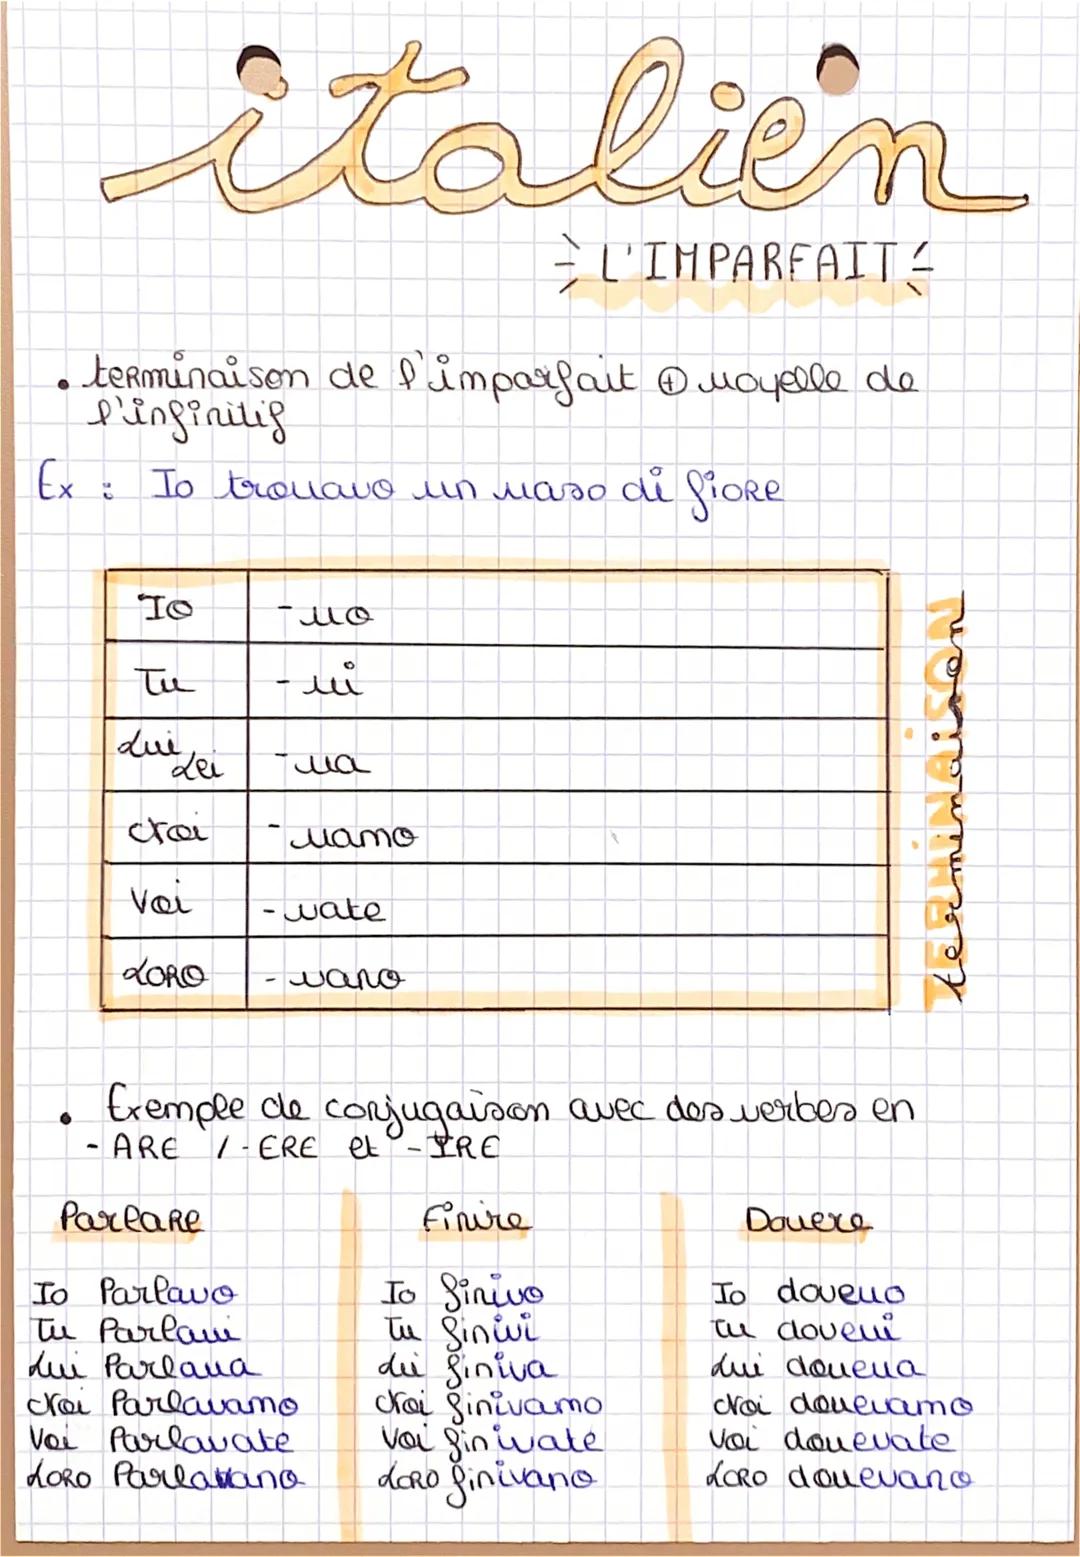 italien
L'IMPARFAIT
• terminaison de l'imparfait ⊕ voyelle de
l'infinitif
Ex : Io trovavo un vaso di fiore
Io -vo
Tu -vi
Lui Lei -va
Noi -vamo
Voi -vate
LORO -vano
TERMINAISON
terminaison
• Exemple de conjugaison avec des verbes en
- ARE / -ERE et -IRE
Parlare Finire Dovere
Io Parlavo Io finivo Io dovevo
Tu Parlavi Tu finivi Tu dovevi
Lui Parlava Lui finiva Lui doveva
Noi Parlavamo Noi finivamo Noi dovevamo
Voi Parlavate Voi finivate Voi dovevate
LORO Parlavano LORO finivano LORO dovevano